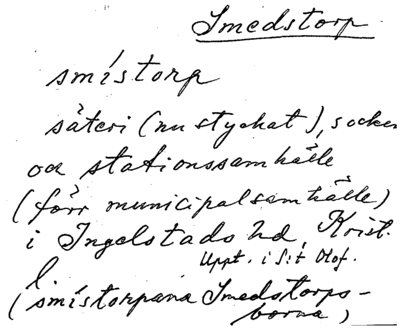 Smedstorp
smístorp
säteri (nu styckat), socken
och stationssamhälle
(förr municipalsamhälle)
i Ingelstads hd, Krist.
l. Uppt. i S:t Olof.
(smístorpana Smedstorps-
borna)